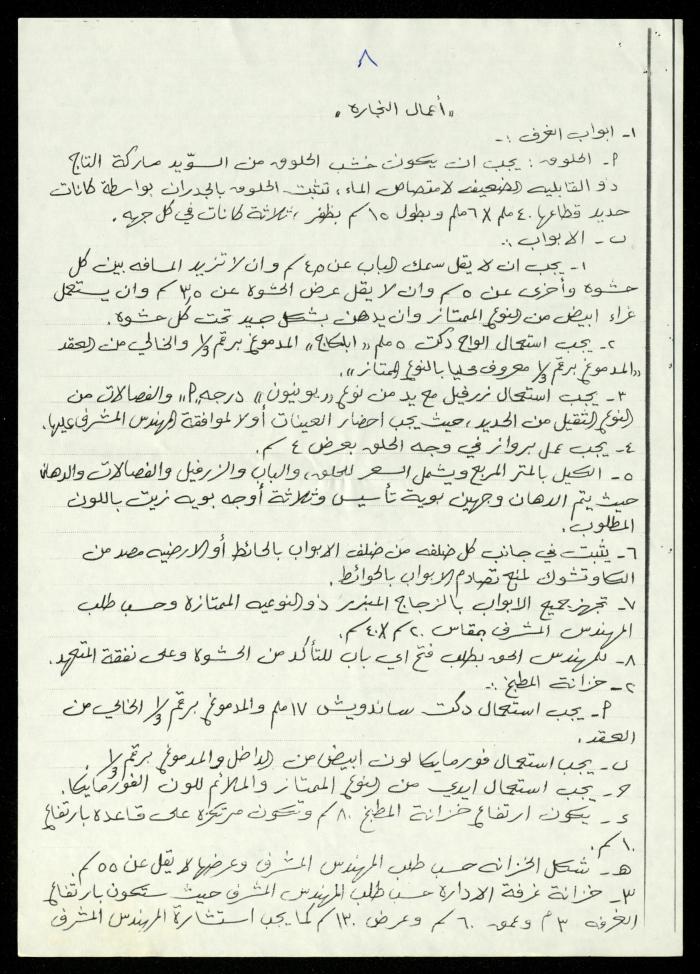 ٨
"أعمال النجارة"
١- ابواب الغرف :-
٩- الحلوق : يجب ان يكون خشب الحلوق من السويد ماركة التاج
ذو القابليه الضعيفه لامتصاص الماء، تثبت الحلوق بالجدران بواسطة كانات
حديد قطاعها ٤٠ ملم X ٦ ملم وبطول ١٥ سم بظفر ، ثلاثة كانات في كل جهه .
ب- الابواب :-
١- يجب ان لا يقل سمك الباب عن ٤,٥ سم وان لا تزيد المسافه بين كل
حشوه وأخرى عن ٥ سم وان لا يقل عرض الحشوه عن ٣,٥ سم وان يستعمل
غراء ابيض من النوع الممتاز وان يدهن بشكل جيد تحت كل حشوه .
٢- يجب استعمال الواح دكت ٥ ملم "ابلكاج" المدموغ برقم ١/٣ والخالي من العقد
"المدموغ برقم ١/٣ معروف محليا بالنوع الممتاز" .
٣- يجب استعمال زرفيل مع يد من نوع "يونيون" درجه ٩" والفصالات من
النوع الثقيل من الحديد ، حيث يجب احضار العينات أولا لموافقة المهندس المشرف عليها .
٤- يجب عمل برواز في وجه الحلق بعرض ٤ سم .
٥- الكيل بالمتر المربع ويشمل السعر للحلق ، والباب والزرفيل والفصالات والدهان
حيث يتم الدهان وجهين بوية تأسيس وثلاثة أوجه بويه زيت باللون
المطلوب .
٦- يثبت في جانب كل ضلفه من ضلف الابواب بالحائط أو الارضيه مصد من
الكاوتشوك لمنع تصادم الابواب بالحوائط .
٧- تجهز جميع الابواب بالزجاج المبزر ذو النوعيه الممتازه وحسب طلب
المهندس المشرف بمقاس ٢٠ سم X ٤٠ سم .
٨- للمهندس الحق بطلب فتح اي باب للتأكد من الحشوه وعلى نفقة المتعهد .
٢- خزانة المطبخ :-
٩- يجب استعمال دكت ساندويش ١٧ ملم والمدموغ برقم ١/٣ الخالي من
العقد .
ب- يجب استعمال فورمايكا لون ابيض من الداخل والمدموغ برقم ١/٣ .
ج- يجب استعمال ايدي من النوع الممتاز والملائم للون الفورمايكا .
د- يكون ارتفاع خزانة المطبخ ٨٠ سم وتكون مرتكزه على قاعده بارتفاع
١٠ سم .
هـ- شكل الخزانه حسب طلب المهندس المشرف وعرضها لا يقل عن ٥٥ سم .
٣- خزانة غرفة الادارة حسب طلب المهندس المشرف حيث ستكون بارتفاع
الغرفه ٣ م وعمق ٦٠ سم وعرض ١٣٠ سم كما يجب استشارة المهندس المشرف